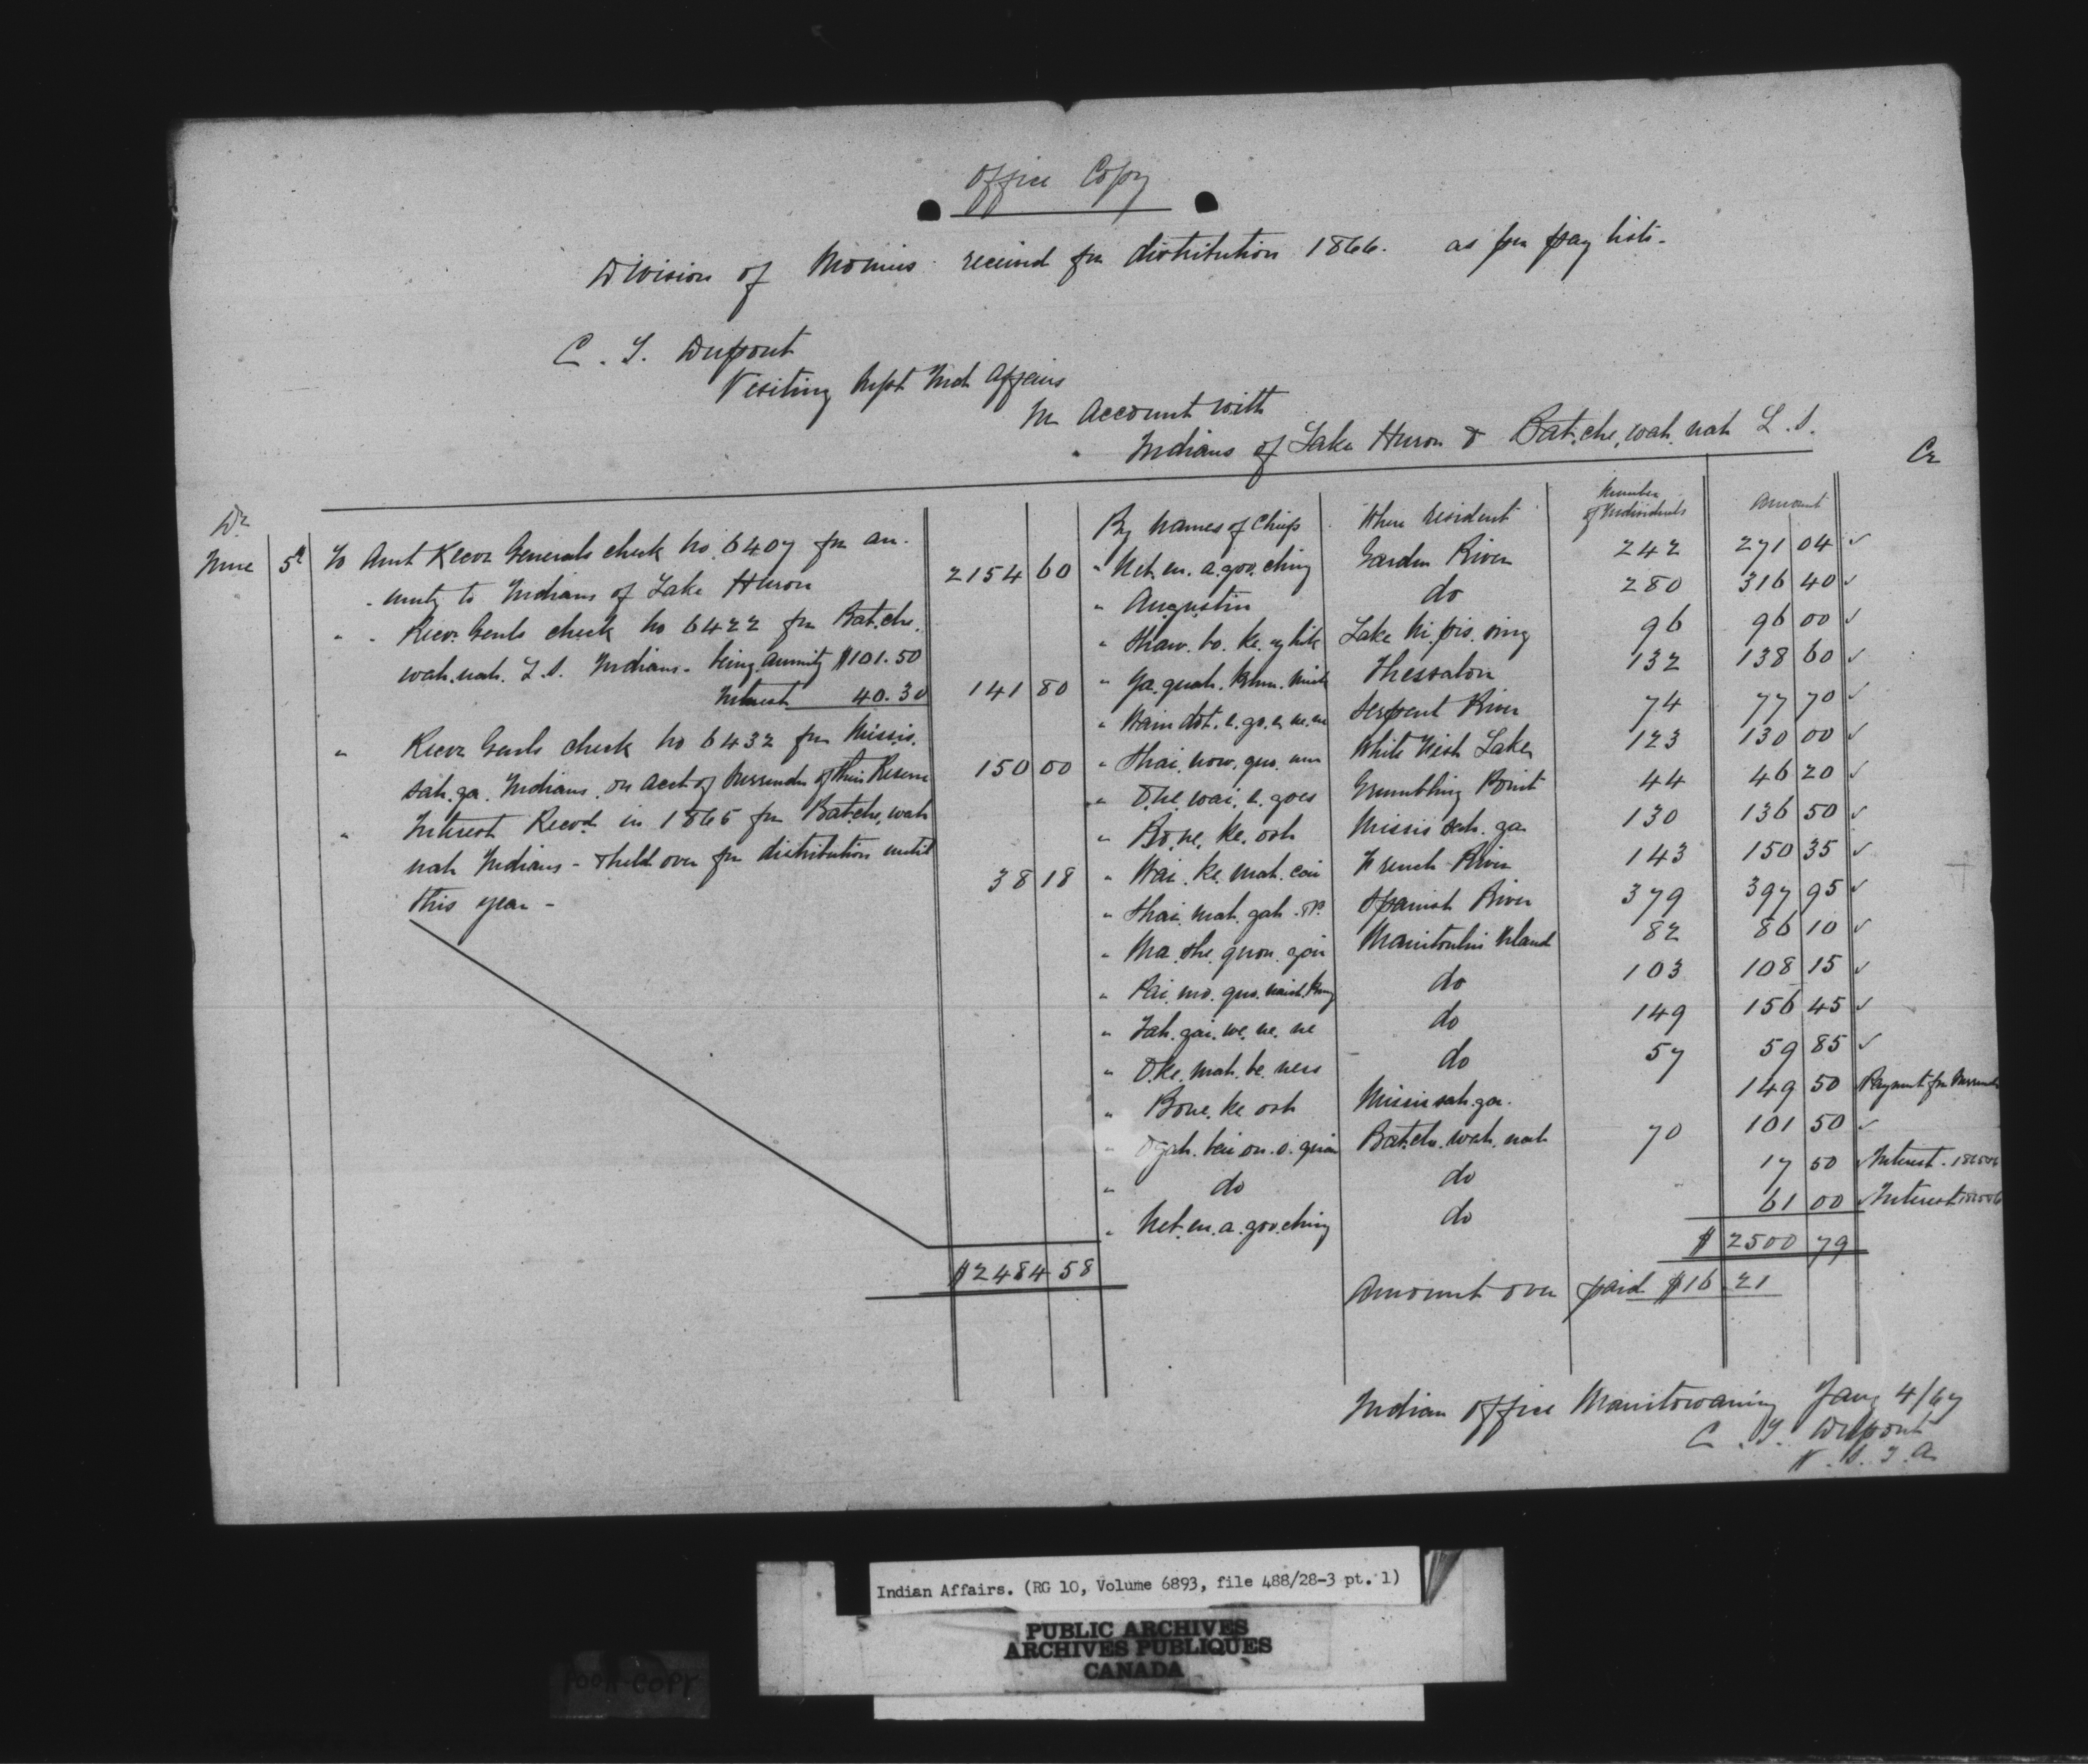 Office Copy
Division of Monies received for distribution 1866. as per pay lists.
C. T. Dupont
Visiting Supt Ind Affairs
In Account with
Indians of Lake Huron & Bat.che.wah.nah L. S.
Dr
Cr
By Names of Chiefs Where resident Number of Individuals Amount
June 5th To Amt Recvr Generals check No. 6407 for an-
nuity to Indians of Lake Huron 2154 60
" " Recvr Genls check No 6422 for Bat.che.
wah.nah. L.S. Indians. being annuity $101.50
Interest 40.30 141 80
" Recvr Genls check No 6432 for Missis.
sah.ga. Indians. on acct of Surrender of their Reserve 150 00
" Interest Recvd in 1865 for Bat.che.wah
nah Indians - & held over for distribution until
this year - 38 18
$2484 58
" Neb.en.a.goo.ching Garden River 242 271 04 ✓
" Augustin do 280 316 40 ✓
" Shaw.bo.ke. Lake Ni.pis.sing 96 96 00 ✓
" Ga.guah. Thessalon 132 138 60 ✓
" Serpent River 74 77 70 ✓
" White Fish Lake 123 130 00 ✓
" O.ke.wai.e.goes Grumbling Point 44 46 20 ✓
" Bo.ne.ke.osh Missis sah.ga 130 136 50 ✓
" Wai.ke.mah. French River 143 150 35 ✓
" Spanish River 379 397 95 ✓
" Manitoulin Island 82 86 10 ✓
" do 103 108 15 ✓
" Tah.gai.we.ne.ne do 149 156 45 ✓
" O.ke.mah.be.ness do 57 59 85 ✓
" Bone.ke osh Missis sah.ga. 149 50 Payment for Surrender
" Bat.che.wah.nah 70 101 50 ✓
" do do 17 50 ✓ Interest.
" Neb.en.a.goo.ching do 61 00 ✓ Interest
$2500 79
Amount over paid $16.21
Indian Office Manitowaning Jany 4/67
C. T. Dupont
V. S. I. A.
Indian Affairs. (RG 10, Volume 6893, file 488/28-3 pt. 1)
PUBLIC ARCHIVES
ARCHIVES PUBLIQUES
CANADA
POOR COPY